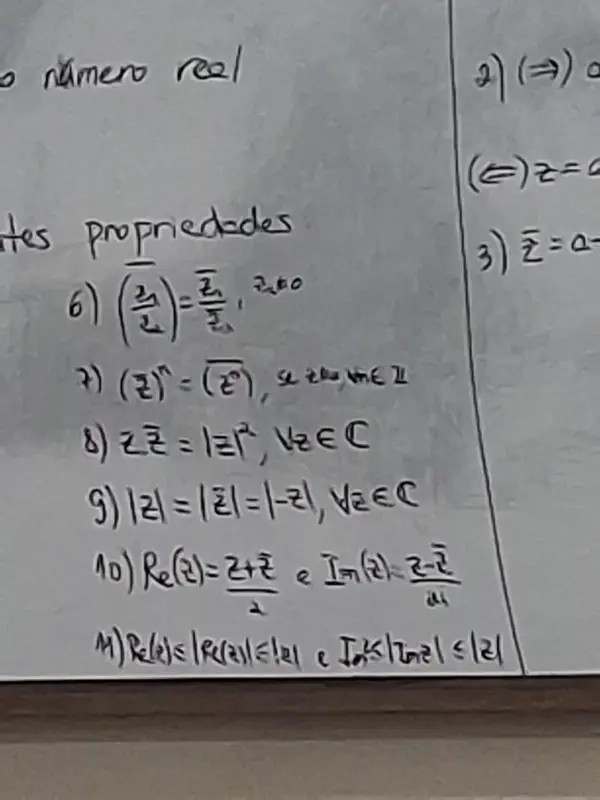 número real
propriedades
6) $\overline{\left(\frac{z_1}{z_2}\right)} = \frac{\overline{z_1}}{\overline{z_2}}$, $z_2 \neq 0$
7) $(\overline{z})^n = \overline{(z^n)}$, se z≠0, ∀n ∈ ℤ
8) $z\overline{z} = |z|^2$, ∀z ∈ ℂ
9) $|z| = |\overline{z}| = |-z|$, ∀z ∈ ℂ
10) $Re(z) = \frac{z + \overline{z}}{2}$ e $Im(z) = \frac{z - \overline{z}}{2i}$
11) Re(z) ≤ |Re(z)| ≤ |z| e Imz ≤ |Imz| ≤ |z|
2) (⇒)
(⇐) z =
3) $\overline{z}$ = a-